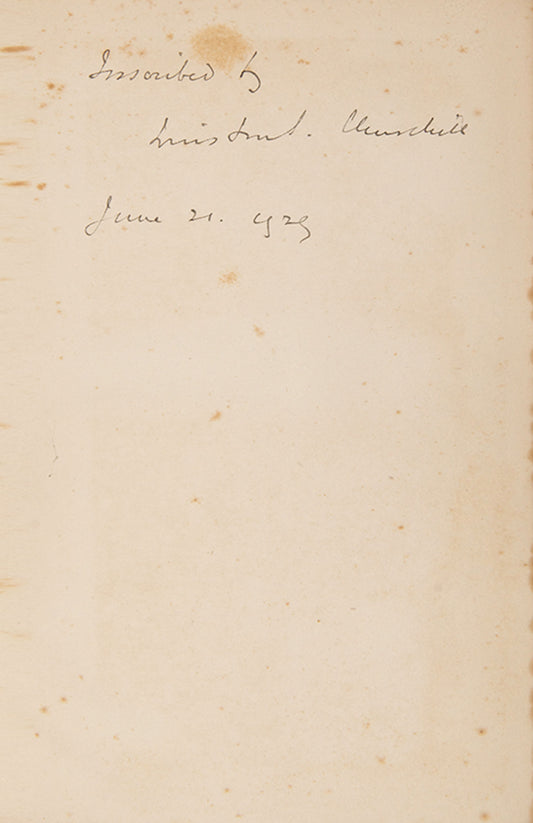 Inscribed by
Winston S. Churchill
June 21. 1929